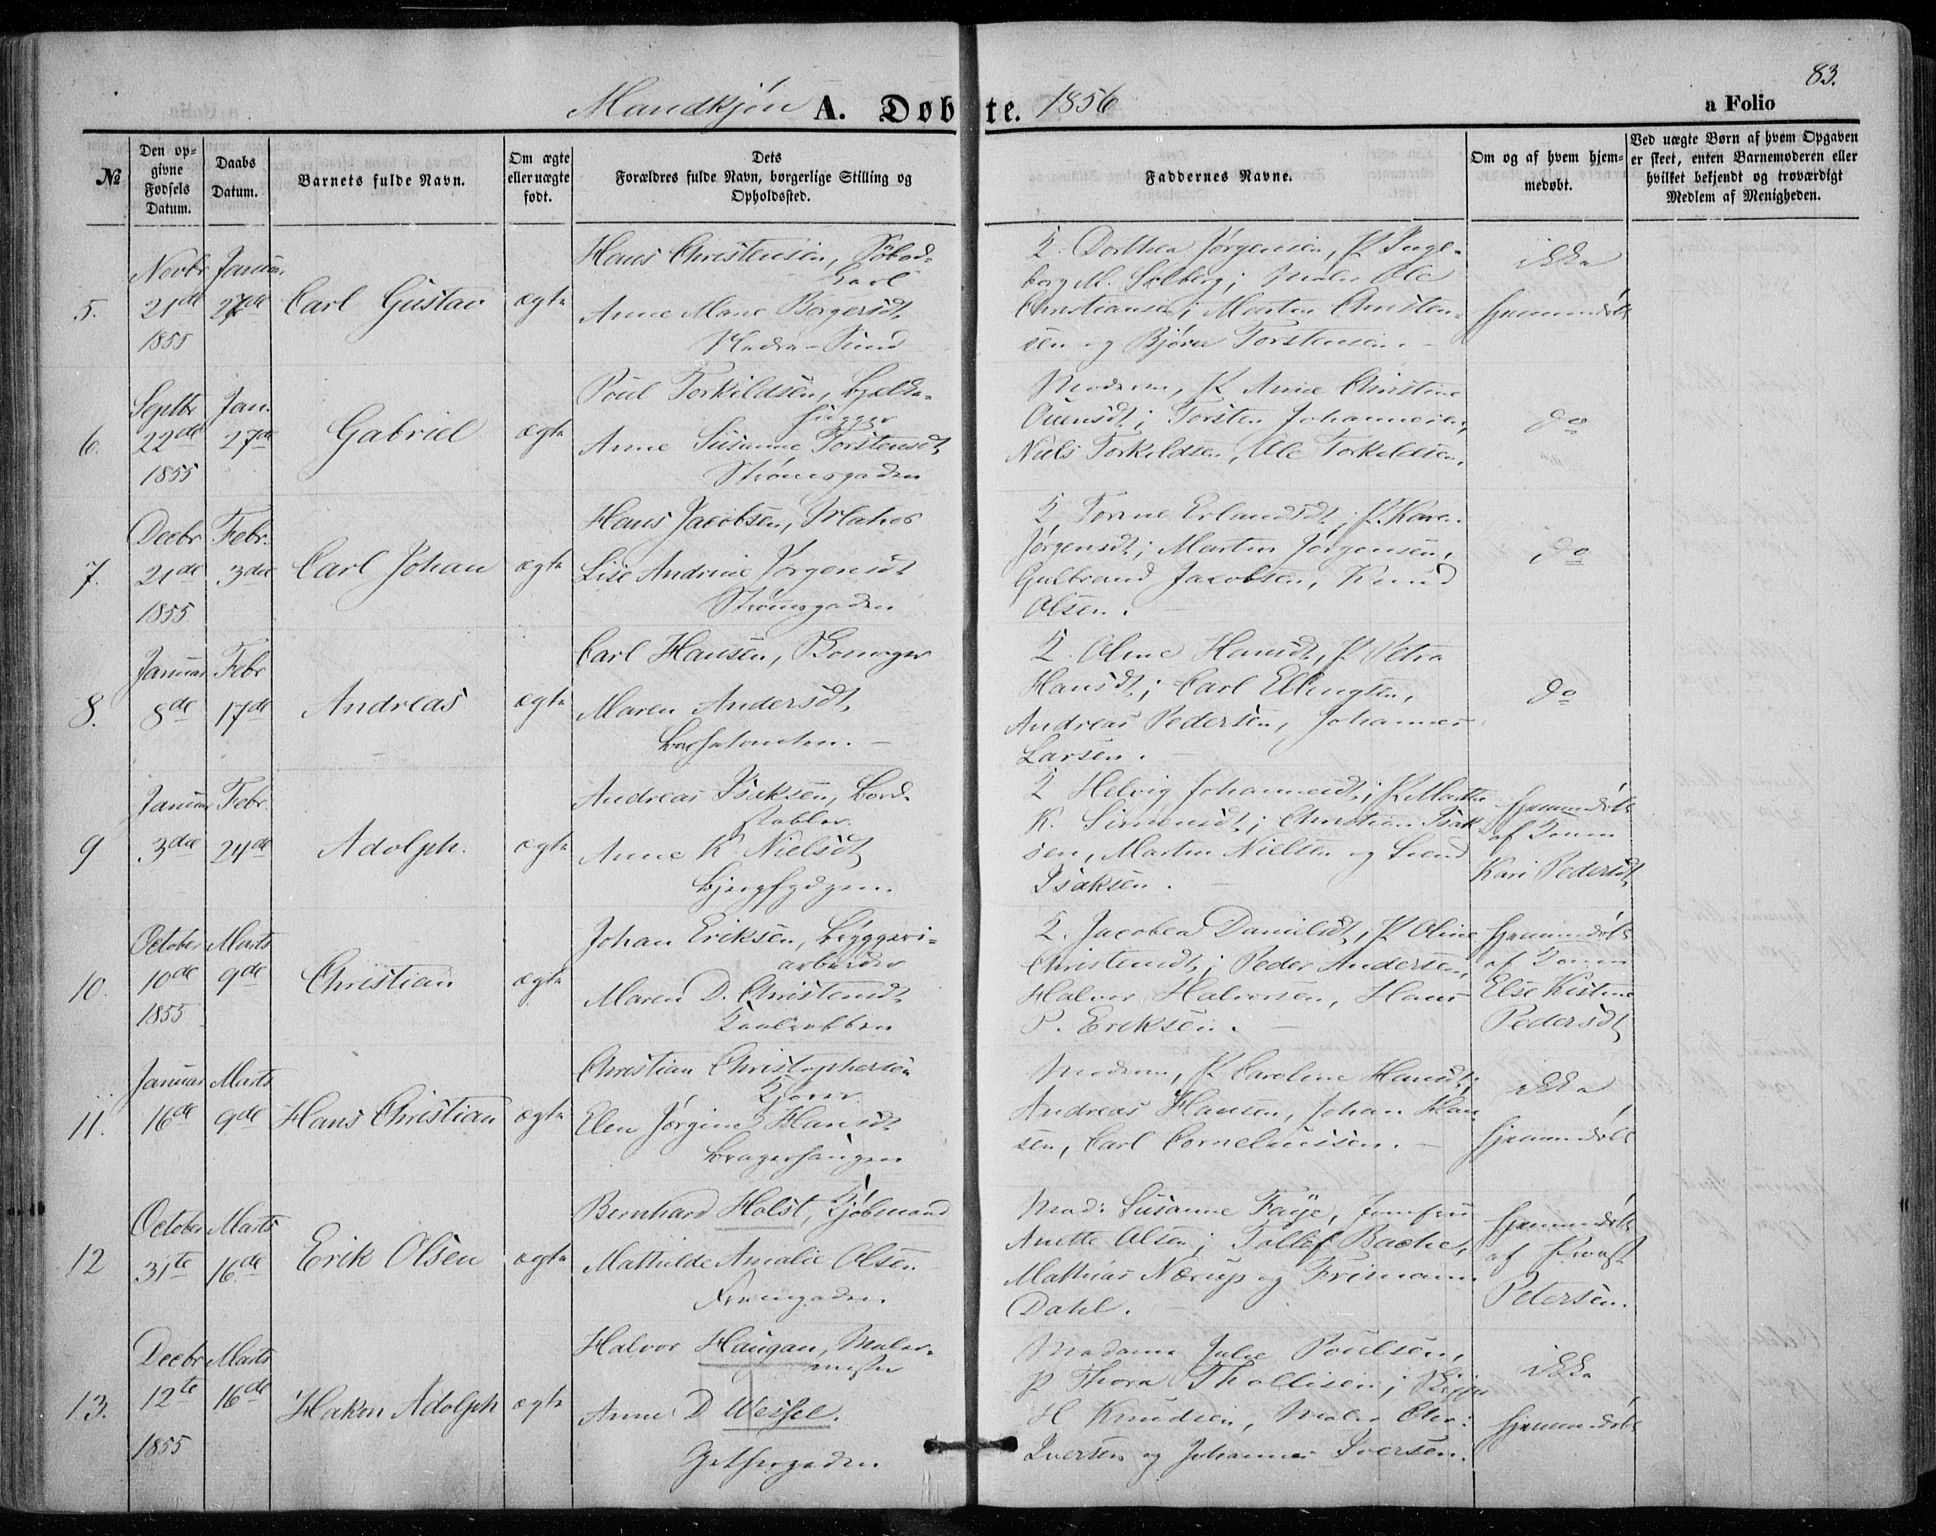 83.
Mandkjøn A. Døbte. 1856
a Folio
№
Den opgivne Fødsels Datum.
Daabs Datum.
Barnets fulde Navn.
Om ægte eller uægte født.
Dets Forældres fulde Navn, borgerlige Stilling og Opholdssted.
Faddernes Navne.
Om og af hvem hjemmedøbt.
Ved uægte Børn af hvem Opgaven er skeet, enten Barnemoderen eller hvilket bekjendt og troværdigt Medlem af Menigheden.
5.
Novbr 21de 1855
Januar 27de
Carl Gustav
ægte
Hans Christensen,
Anne Marie Borgersdt,
Sund
K. Dorthea Jørgensen, P. Inge-
borg M. Solberg; Maler Ole
Christiansen, Morten Christen-
sen og Bjørn Torstensen.
ikke
hjemmedøbt
6.
Septbr 22de 1855
Jan. 27de
Gabriel
ægte
Poul Torkildsen, Bjelke-
hugger
Anne Susanne Torstensdt,
Strømsgaden
Moderen, P. Anne Christine
Ouensdt; Torsten Johannesen,
Niels Torkildsen, Ole Torkildsen.
do
7.
Decbr 21de 1855
Febr. 3die
Carl Johan
ægte
Hans Jacobsen, Matros
Lise Andrine Jørgensdt
Strømsgaden
K. Torine Erlandsdt; P. Karen
Jørgensdt; Martin Jørgensen,
Gulbrand Jacobsen, Knud
Olsen.
do
8.
Januar 8de
Febr 17de
Andreas
ægte
Carl Hansen,
Maren Andersdt,
K. Oline Hansdt, P. Petra
Hansdt; Carl Ellingsen,
Andreas Pedersen, Johannes
Larsen.
do
9
Januar 3die
Febr. 24de
Adolph.
ægte
Andreas Isaksen, Bord-
stabler
Anne K. Nielsdt,
K. Helvig Johannesdt; P. Marthe
K. Simensdt; Christian Isak-
sen, Martin Nielsen og Svend
Isaksen.
hjemmedøbt
af Konen
Kari Pedersdt,
10.
October 10de 1855
Marts 9de
Christian
ægte
Johan Eriksen, Bryggeri-
arbeider
Maren D. Christensdt,
K. Jacobea Danielsdt, P. Oline
Christensdt; Peder Andersen,
Halvor Halvorsen, Hans
P. Eriksen.
hjemmedøbt
af Konen
Else Kistine
Pedersdt,
11.
Januar 16de
Marts 9de
Hans Christian
ægte
Christian Christophersen
Elen Jørgine Hansdt
Moderen, P. Caroline Hansdt;
Andreas Hansen, Johan Han-
sen, Carl Corneliussen.
ikke
hjemmedøbt
12
October 31te
Marts 16de
Erik Olsen
ægte
Bernhard Holst, Kjøbmand
Mathilde Amalie Olsen
Mad: Susanne Faye, Jomfru
Anette Olsen; Tollef Bache,
Mathias Nærup og Frimann
Dahl.
hjemmedøbt
af Provst
Petersen.
13.
Decbr 12te 1855
Marts 16de
Hakon Adolph
ægte
Halvor Haugan, Maler-
mester
Anne D. Wessel.
Madame Julie Poulsen,
P. Thora Thollisen; Skipper
H Knudsen, Maler Chr:
Iversen og Johannes Iversen.
ikke
hjemmedøbt